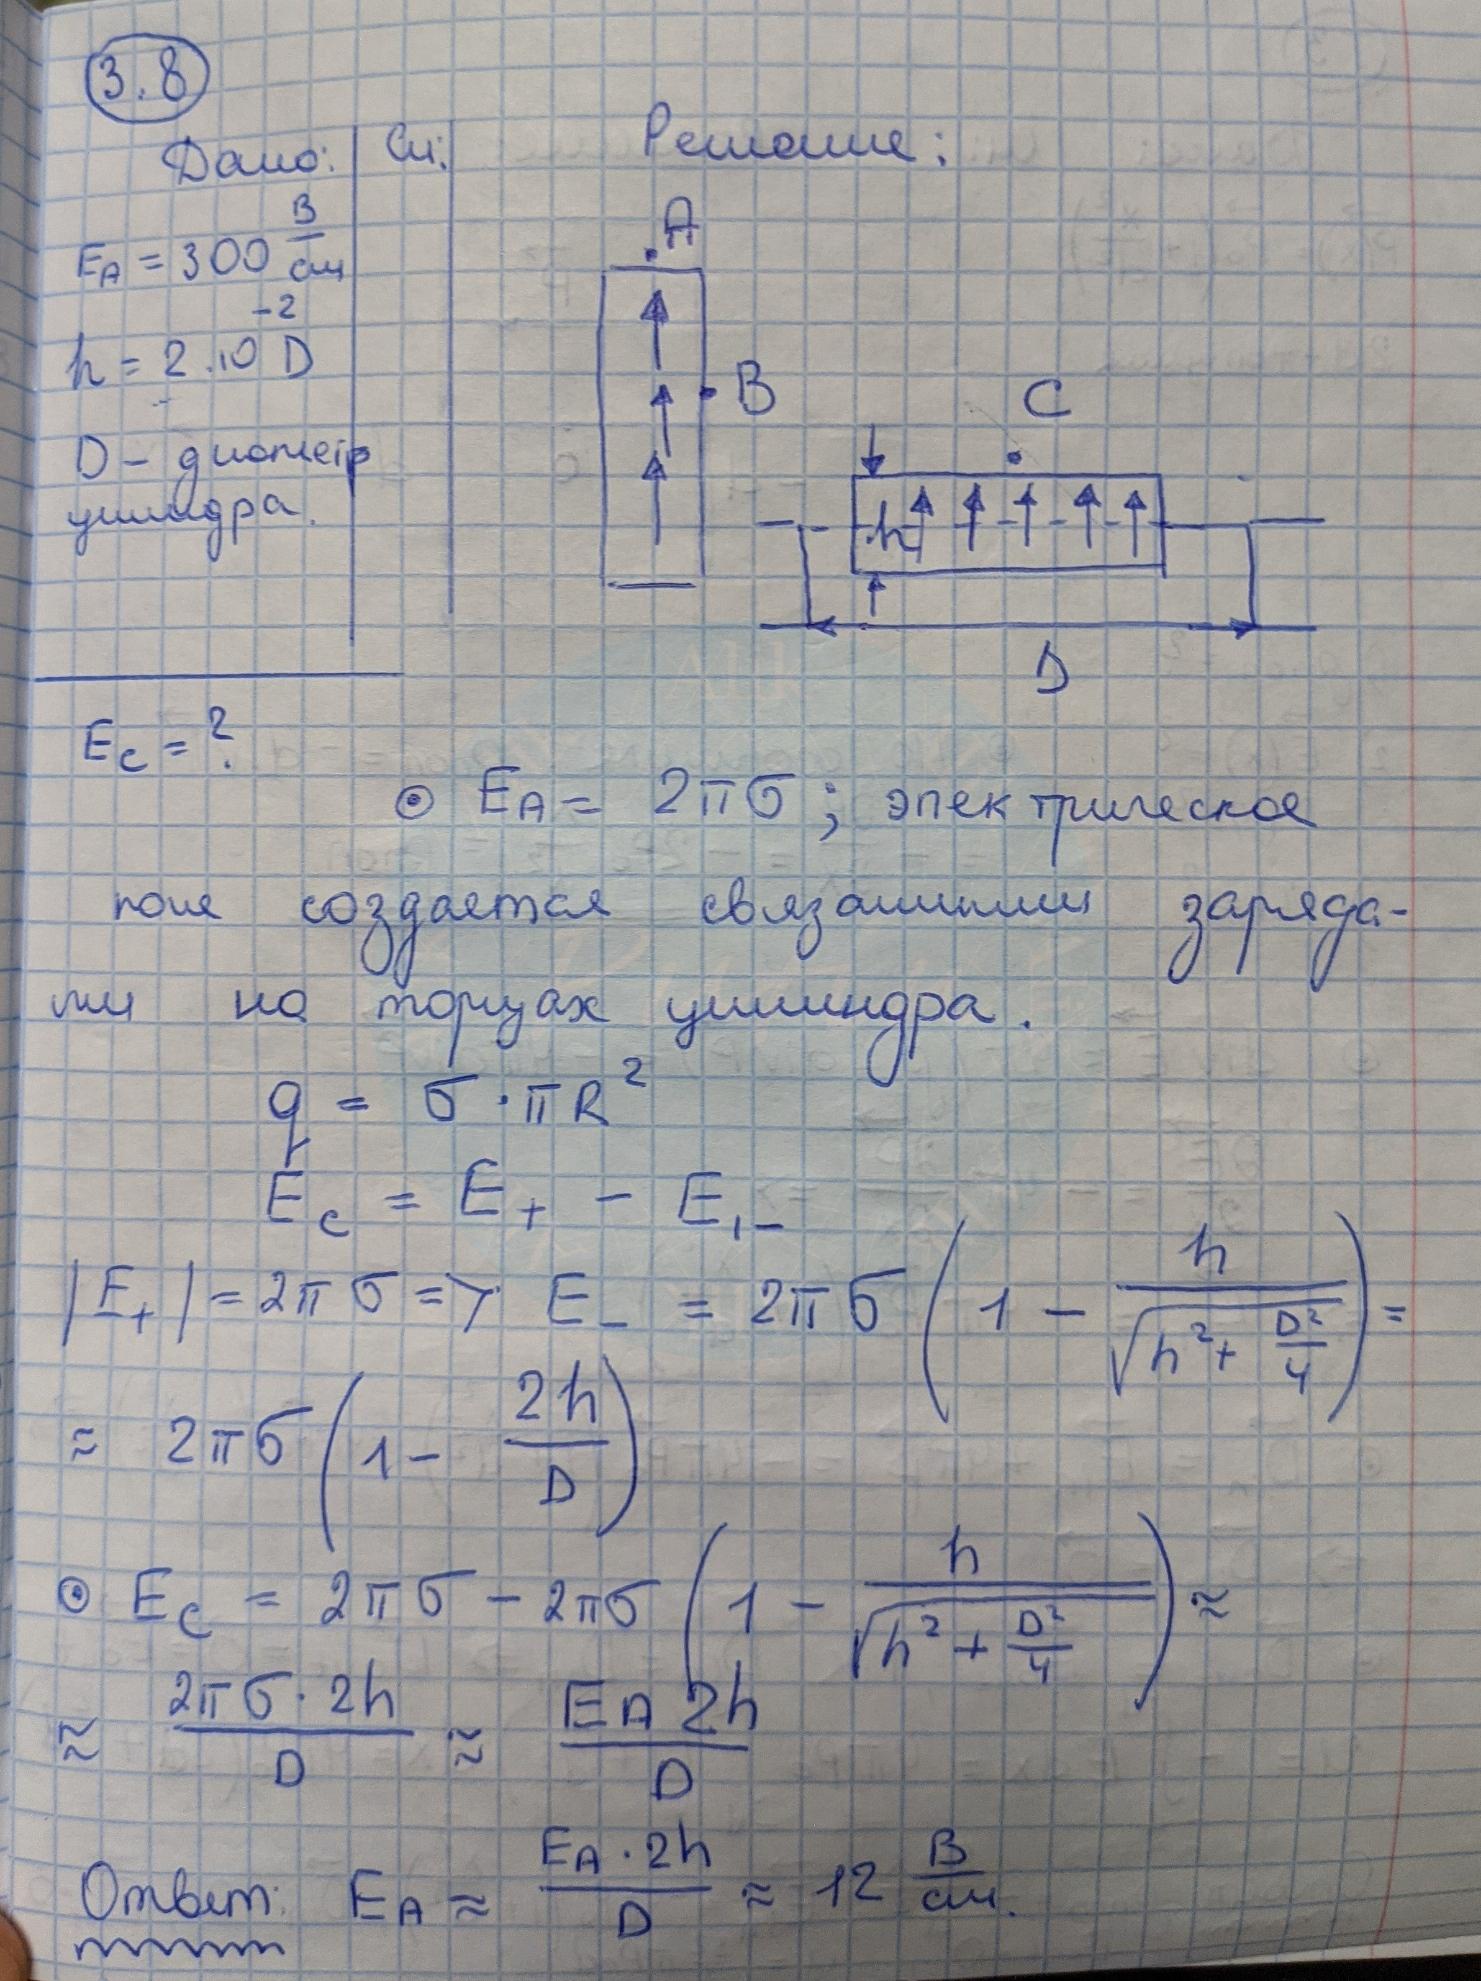 3.8
Дано:
Си:
Решение:
E_A = 300 В/см
h = 2·10^-2 D
D – диаметр
цилиндра.
E_C = ?
A
B
C
h
D
⊙ E_A = 2πσ; электрическое
поле создается связанными заряда-
ми на торцах цилиндра.
q = σ·πR^2
E_C = E_+ − E_-
|E_+| = 2πσ => E_- = 2πσ(1 − h/√(h^2 + D^2/4)) =
≈ 2πσ(1 − 2h/D)
⊙ E_C = 2πσ − 2πσ(1 − h/√(h^2 + D^2/4)) ≈
≈ 2πσ·2h/D ≈ E_A 2h/D
Ответ: E_A ≈ E_A·2h/D ≈ 12 В/см.